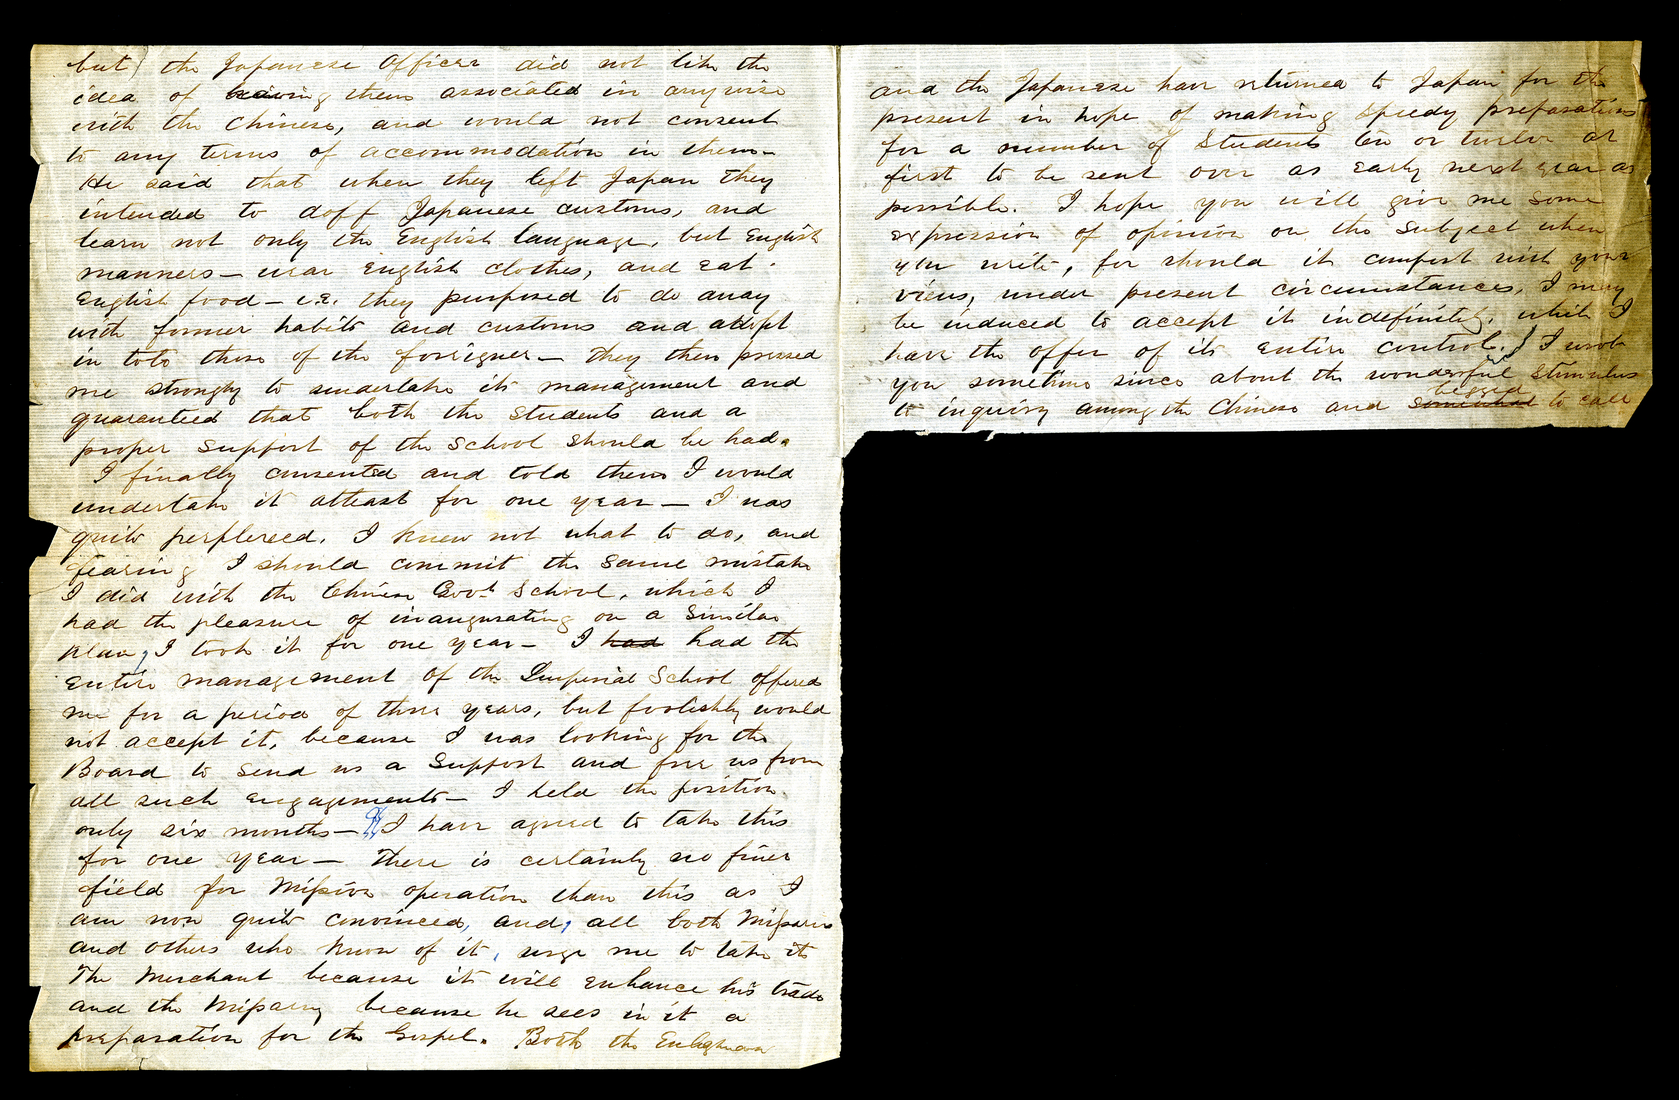 but) the Japanese Officer did not like the
idea of having them associated in anywise
with the Chinese, and would not consent
to any terms of accommodation in them—
He said that when they left Japan they
intended to doff Japanese customs, and
learn not only the English language, but English
manners — wear English clothes, and eat
English food — i.e. they purposed to do away
with former habits and customs and adopt
in toto those of the foreigner — They then pressed
me strongly to undertake its management and
guaranteed that both the students and a
proper support of the School should be had.
I finally consented and told them I would
undertake it atleast for one year — I was
quite perplexed, I knew not what to do, and
fearing I should commit the same mistake
I did with the Chinese Govt School, which I
had the pleasure of inaugurating on a similar
plan, I took it for one year — I had had the
entire management of the Imperial School offered
me for a period of three years, but foolishly would
not accept it, because I was looking for the
Board to send us a support and free us from
all such engagements — I held the position
only six months — ¶ I have agreed to take this
for one year — There is certainly no finer
field for Mission operation than this as I
am now quite convinced, and, all both Missary
and others who know of it, urge me to take it
The Merchant because it will enhance his trade
and the Missary because he sees in it a
preparation for the Gospel. Both the Englishman
and the Japanese have returned to Japan for the
present in hope of making speedy preparation
for a number of Students ten or twelve at
first to be sent over as early next year as
possible. I hope you will give me some
expression of opinion on the subject when
you write, for should it comport with your
views, under present circumstances, I may
be induced to accept it indefinitely, while I
have the offer of its entire control.) I wrote
you sometime since about the wonderful stimulus
begged
to inquiry among the Chinese and somewhat to call